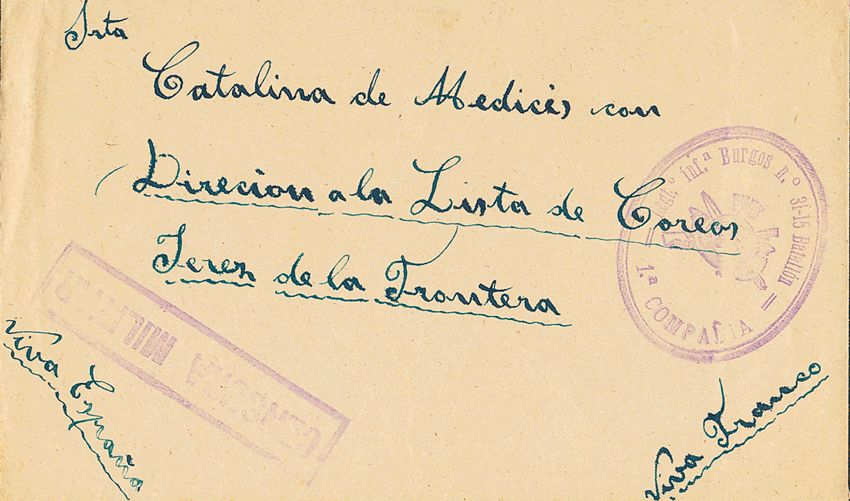 Srta
Catalina de Medicis con
Direcion a la Lista de Coreos
Jerez de la Frontera
Viva España
Viva Franco
CENSURA MILITAR
inf.ª Burgos n.º 31-15 Batallón
1.ª COMPAÑIA